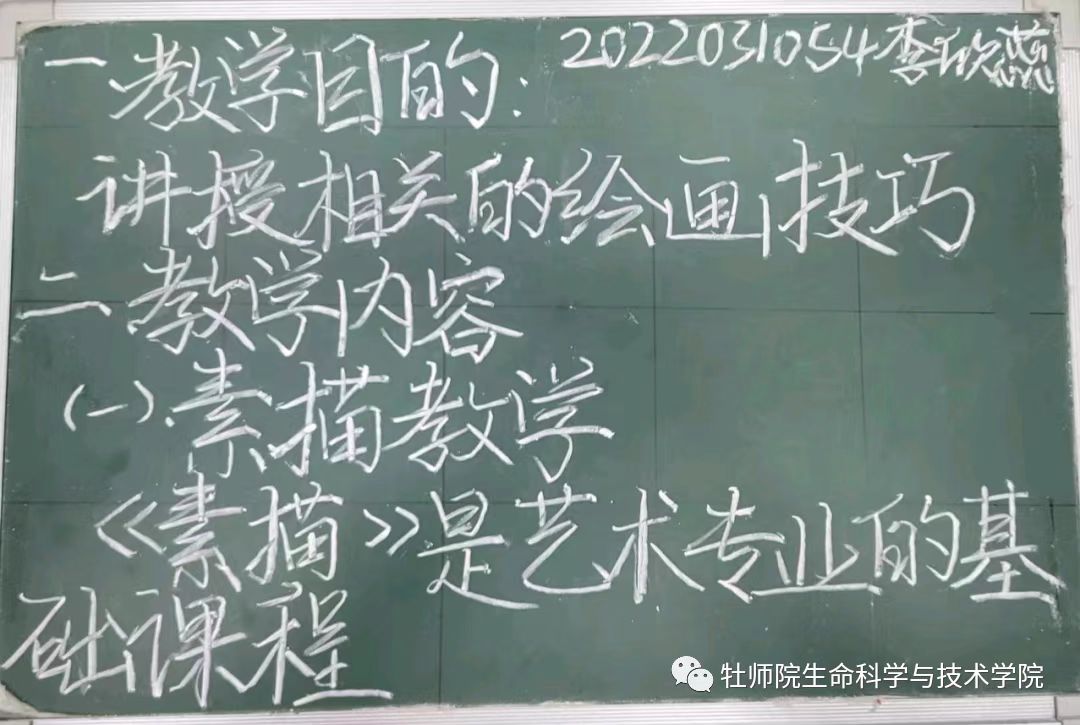 一、教学目的：
2022031054李欣蕊
讲授相关的绘画技巧
二、教学内容
(一).素描教学
《素描》是艺术专业的基
础课程
牡师院生命科学与技术学院